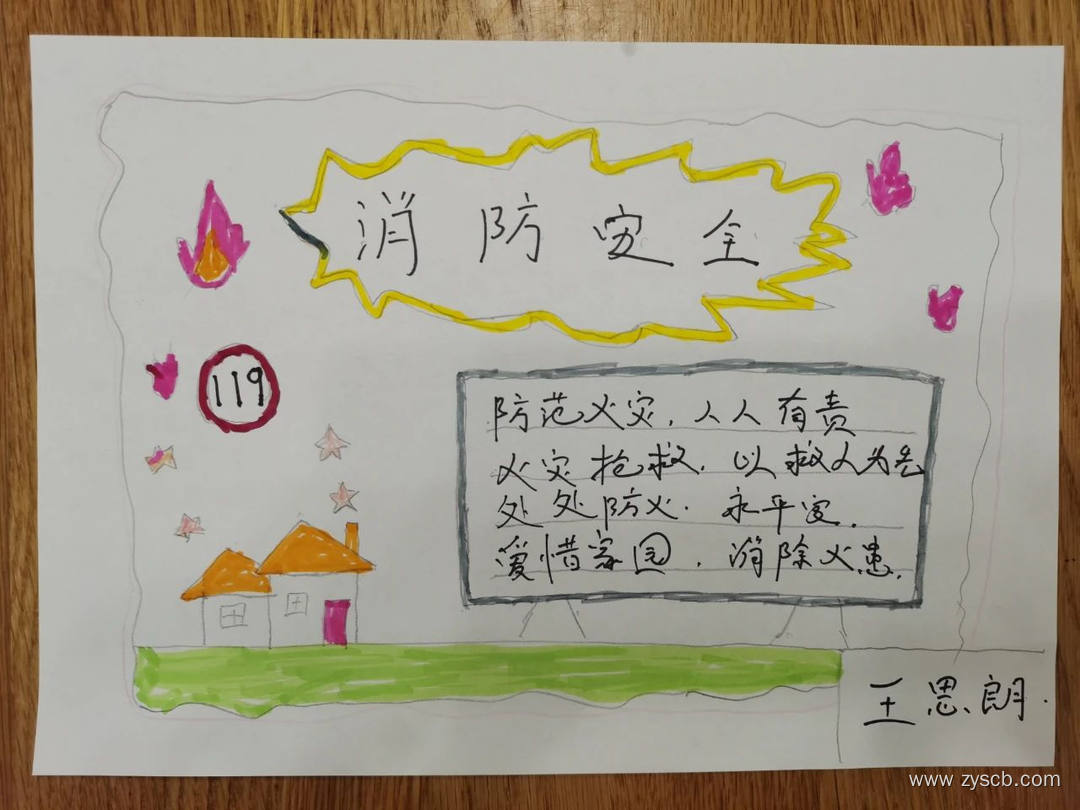 消防安全
119
防范火灾，人人有责
火灾抢救，以救人为先
处处防火．永平安．
爱惜家园，消除火患．
王思朗．
www.zyscb.com